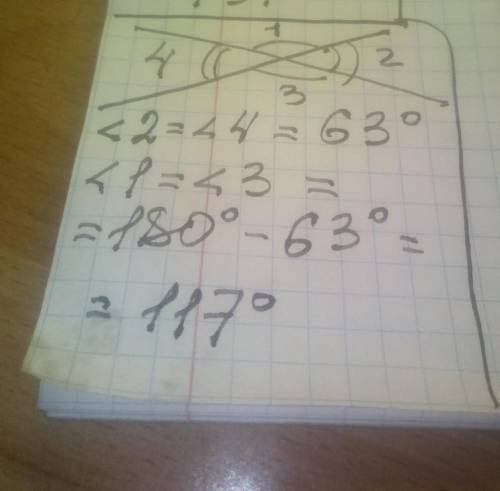 1
4 2
3
<2 = <4 = 63°
<1 = <3 =
= 180° - 63° =
= 117°